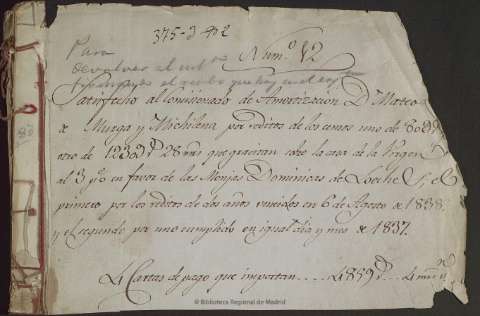 375-3 nº2
Para Num.º 12
devolver al
el recibo que hay en el
Satisfecho al Comisionado de Amortizacion D. Mateo
de Murga y Michelena por reditos de los censos uno de
otro de 28 mrs que gravitan sobre la casa de la Virgen
al 3 p% en favor de las Monjas Dominicas de Loeches, el
primero por los reditos de dos años vencidos en 6 de Agosto de 1838
y el segundo por uno cumplido en igual dia y mes de 1837.
4 Cartas de pago que importan..... 4859 r.s 4 mrs
© Biblioteca Regional de Madrid